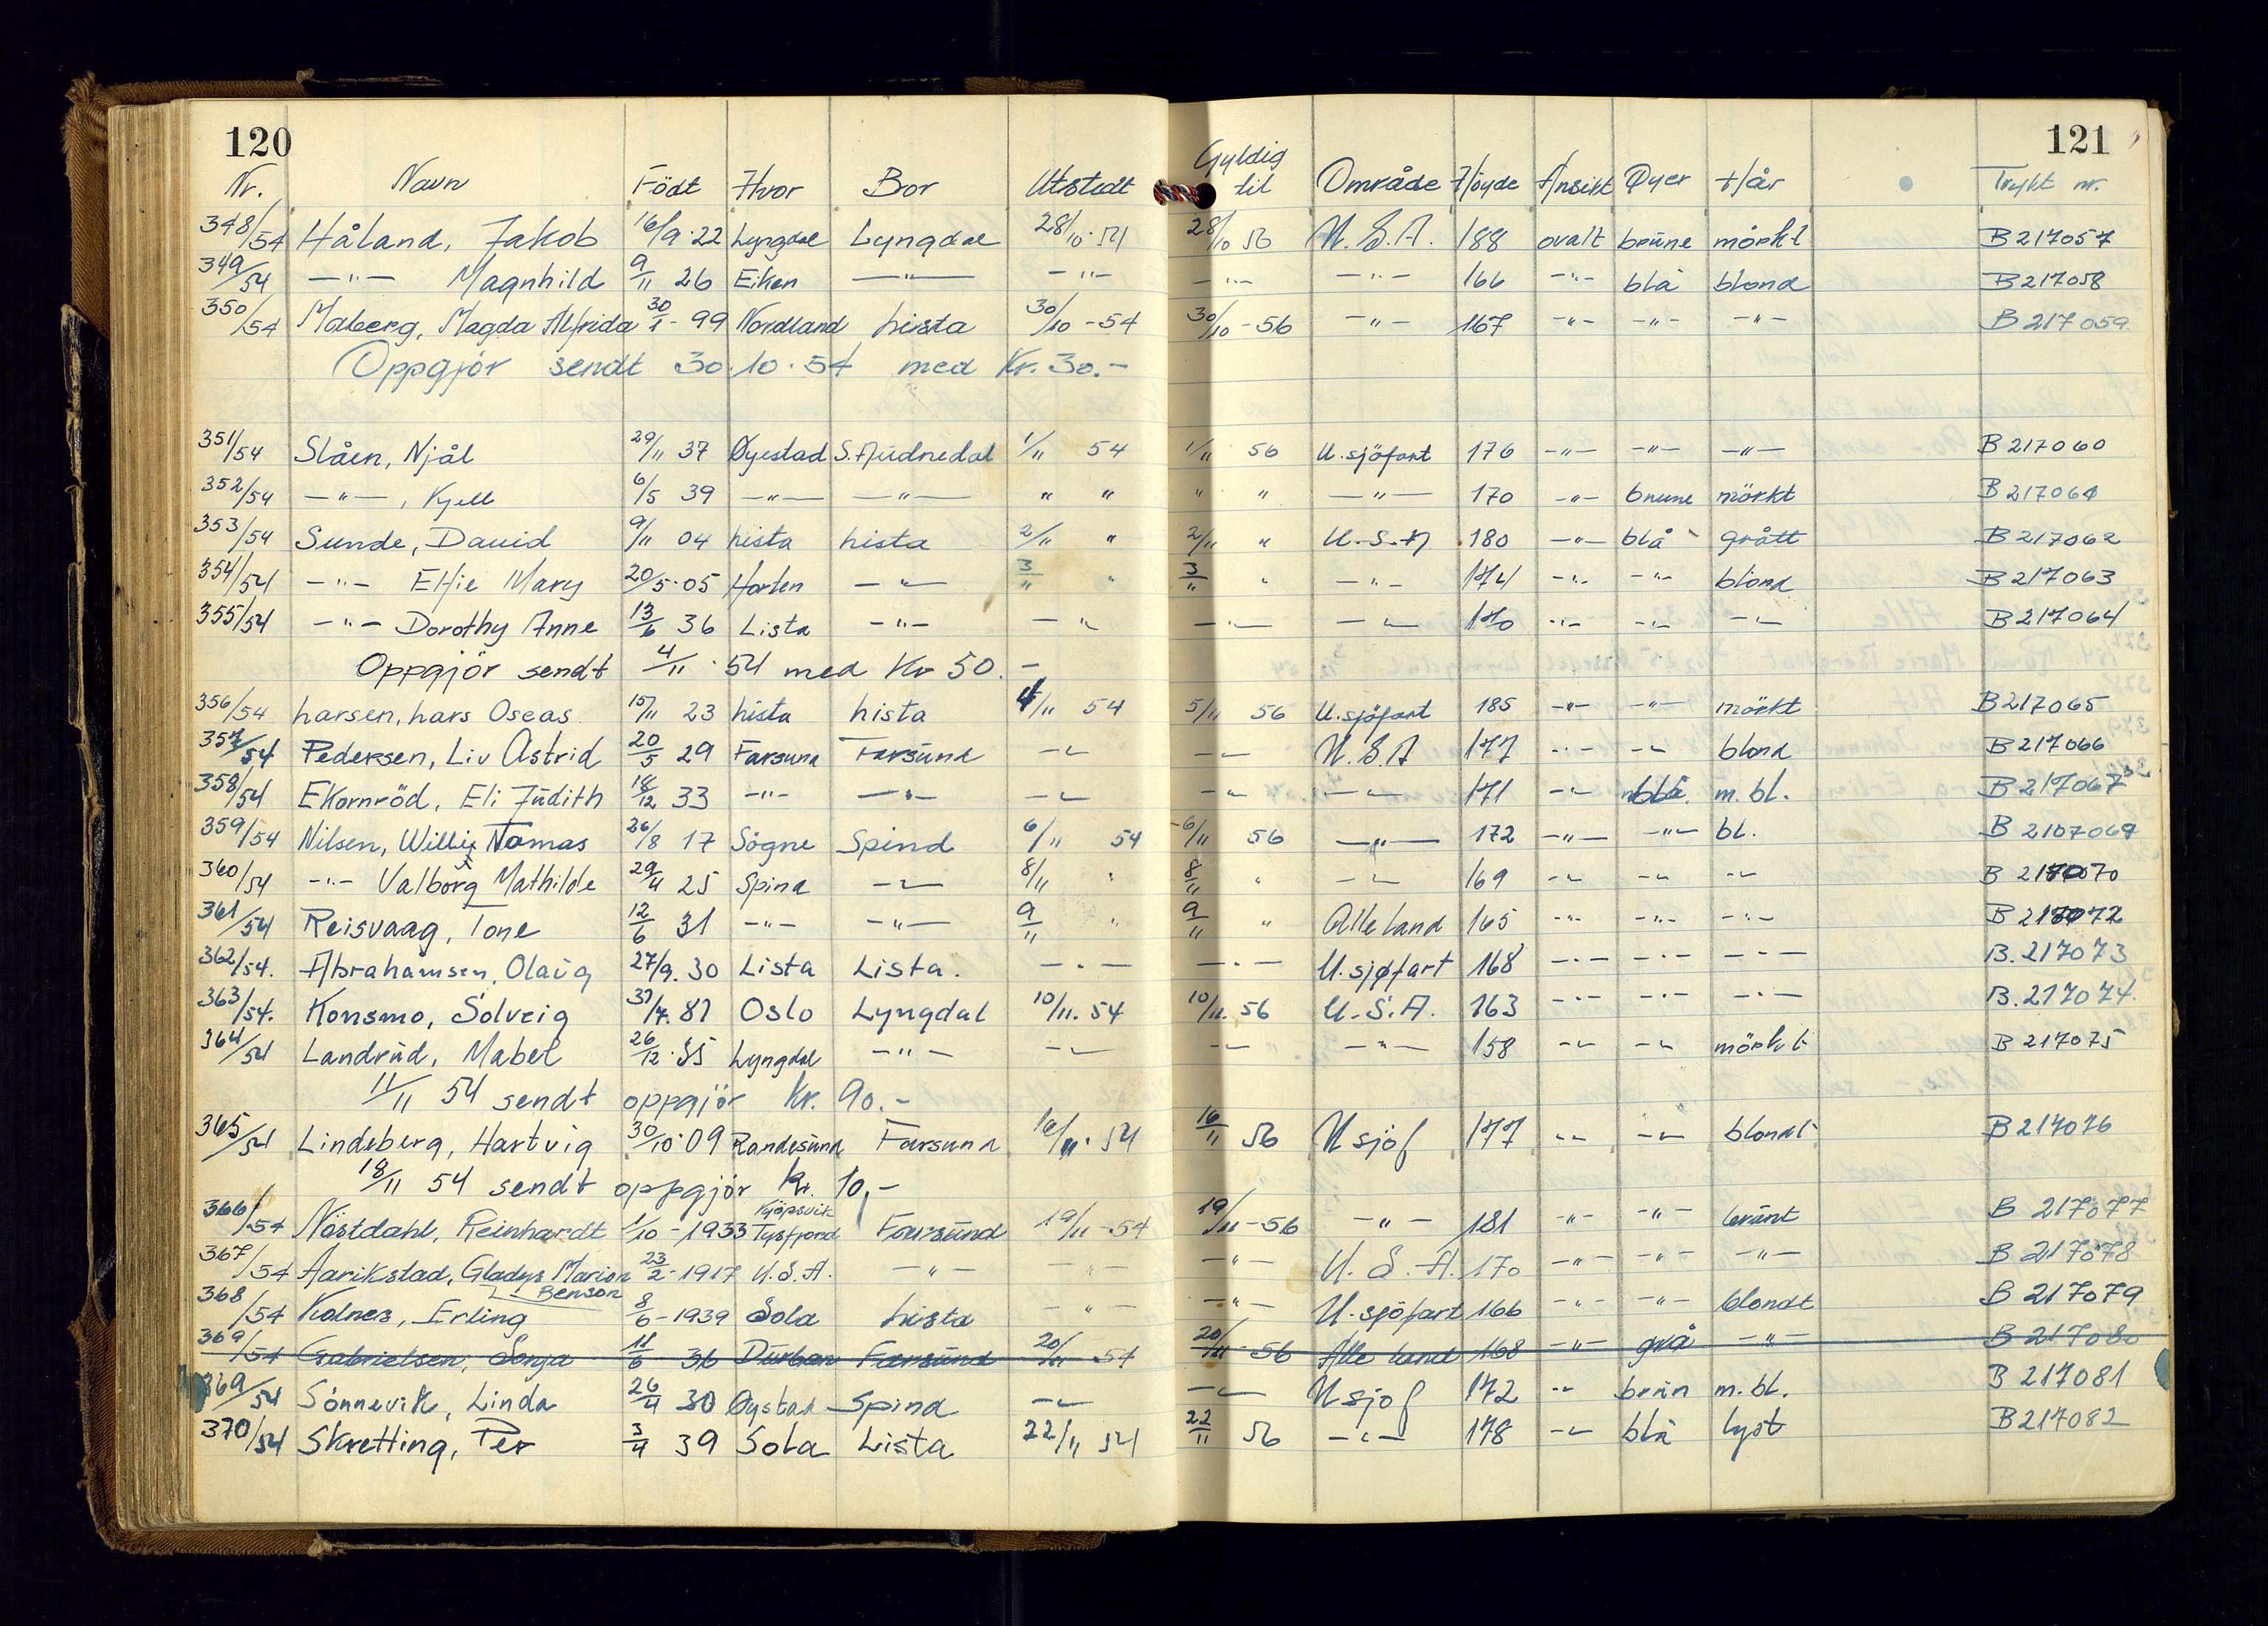 120
121
Nr. Navn Födt Hvor Bor Utstedt Gyldig til Område Höyde Ansikt Öyer Hår Trykt nr.
348/54 Håland, Jakob 16/9.22 Lyngdal Lyngdal 28/10.54 28/10 56 U.S.A. 188 ovalt brune mörkt B 217057
349/54 —"— Magnhild 9/11 26 Eiken —"— —"— —"— —"— 166 —"— blå blond B 217058
350/54 Malberg, Magda Alfrida 30/1-99 Nordland Lista 30/10-54 30/10-56 —"— 167 —"— —"— —"— B 217059.
Oppgjör sendt 30.10.54 med Kr. 30.-
351/54 Slåen, Njål 29/11 37 Øyestad S.Audnedal 1/11 54 1/11 56 U.sjöfart 176 —"— —"— —"— B 217060
352/54 —"—, Kjell 6/5 39 —"— —"— " " " " —"— 170 —"— brune mörkt B 217061
353/54 Sunde, David 9/11 04 Lista Lista 2/11 " 2/11 " U.S.A 180 —"— blå grått B 217062
354/54 —"— Effie Mary 20/5.05 Horten —"— 3/11 " 3/11 " —"— 174 —"— —"— blond B 217063
355/54 —"— Dorothy Anne 13/6 36 Lista —"— —"— —"— —"— 170 —"— —"— —"— B 217064
Oppgjör sendt 4/11.54 med Kr 50.-
356/54 Larsen, Lars Oseas 15/11 23 Lista Lista 4/11 54 5/11 56 U.sjöfart 185 —"— —"— mörkt B 217065
357/54 Pedersen, Liv Astrid 20/5 29 Farsund Farsund —"— —"— U.S.A 177 —"— —"— blond B 217066
358/54 Ekornröd, Eli Judith 18/12 33 —"— —"— —"— —"— —"— 171 —"— blå m. bl. B 217067
359/54 Nilsen, Willy Tomas 26/8 17 Sögne Spind 6/11 54 6/11 56 —"— 172 —"— —"— bl. B 2107069
360/54 —"— Valborg Mathilde 29/4 25 Spind —"— 8/11 " 8/11 " —"— 169 —"— —"— —"— B 217070
361/54 Reisvaag, Tone 12/6 31 —"— —"— 9/11 " 9/11 " Alle land 165 —"— —"— —"— B 217072
362/54. Abrahamsen, Olaug 27/9.30 Lista Lista. —"— —"— U.sjøfart 168 —"— —"— —"— B. 217073
363/54. Konsmo, Solveig 31/7.81 Oslo Lyngdal 10/11.54 10/11.56 U.S.A. 163 —"— —"— —"— B. 217074.
364/54 Landrud, Mabel 26/12.35 Lyngdal —"— —"— —"— —"— 158 —"— —"— mörkt B 217075
11/11 54 sendt oppgjör Kr. 90.-
365/54 Lindeberg, Hartvig 30/10.09 Randesund Farsund 16/11.54 16/11 56 U sjöf 177 —"— —"— blondt B 217076
18/11 54 sendt oppgjör Kr. 10,-
366/54 Nöstdahl, Reinhardt 1/10-1933 Kjöpsvik Tysfjord Farsund 19/11-54 19/11-56 —"— 181 —"— —"— brunt B 217077
367/54 Aarikstad, Gladys Marion Benson 23/2-1917 U.S.A. —"— —"— —"— U.S.A. 170 —"— —"— —"— B 217078
368/54 Kolnes, Erling 8/6-1939 Sola Lista —"— —"— U.sjöfart 166 —"— —"— blondt B 217079
369/54 Gabrielsen, Sonja 11/6 36 Durban Farsund 20/11-54 20/11-56 Alle land 168 —"— grå —"— B 217080
369/54 Sönnevik, Linda 26/4 30 Øystad Spind —"— —"— U sjöf 172 —"— brun m. bl. B 217081
370/54 Skretting, Per 3/4 39 Sola Lista 22/11 54 22/11 56 —"— 178 —"— blå lyst B 217082